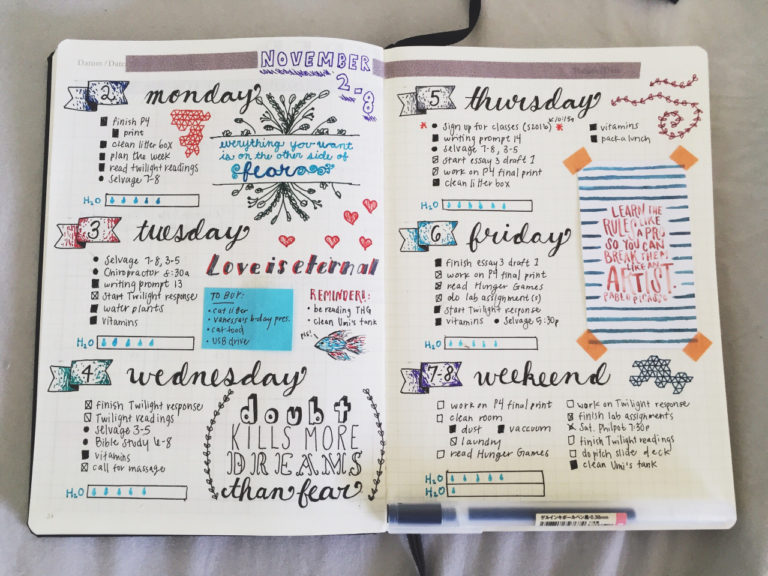 Datum / Date:
NOVEMBER
2-8
2 monday
finish P4
print
clean litter box
plan the week
read twilight readings
selvage 7-8
H2O
everything you want
is on the other side of
fear
3 tuesday
selvage 7-8, 3-5
Chiropractor 8:30a
writing prompt 13
start Twilight response
water plants
vitamins
H2O
Love is eternal
TO BUY:
cat litter
vanessa's b-day pres.
cat food
USB drive
REMINDERS:
be reading THG
clean Umi's tank
4 wednesday
finish Twilight response
Twilight readings
selvage 3-5
Bible Study 6-8
vitamins
call for massage
H2O
doubt
KILLS MORE
DREAMS
than fear
5 thursday
sign up for classes (S2016)
writing prompt 14
selvage 7-8, 3-5
start essay 3 draft 1
work on P4 final print
clean litter box
vitamins
pack a lunch
H2O
6 friday
finish essay 3 draft 1
work on P4 final print
read Hunger Games
do lab assignment(s)
start Twilight response
vitamins selvage 5:30p
H2O
LEARN THE
RULES LIKE
A PRO
SO YOU CAN
BREAK THEM
LIKE AN
ARTIST.
PABLO PICASSO
7-8 weekend
work on P4 final print
clean room
dust vaccuum
laundry
read Hunger Games
work on Twilight response
finish lab assignments
Sat. Philpot 7:30p
finish Twilight readings
do pitch slide deck
clean Umi's tank
H2O
H2O
ゲルインキボールペン 0.38mm